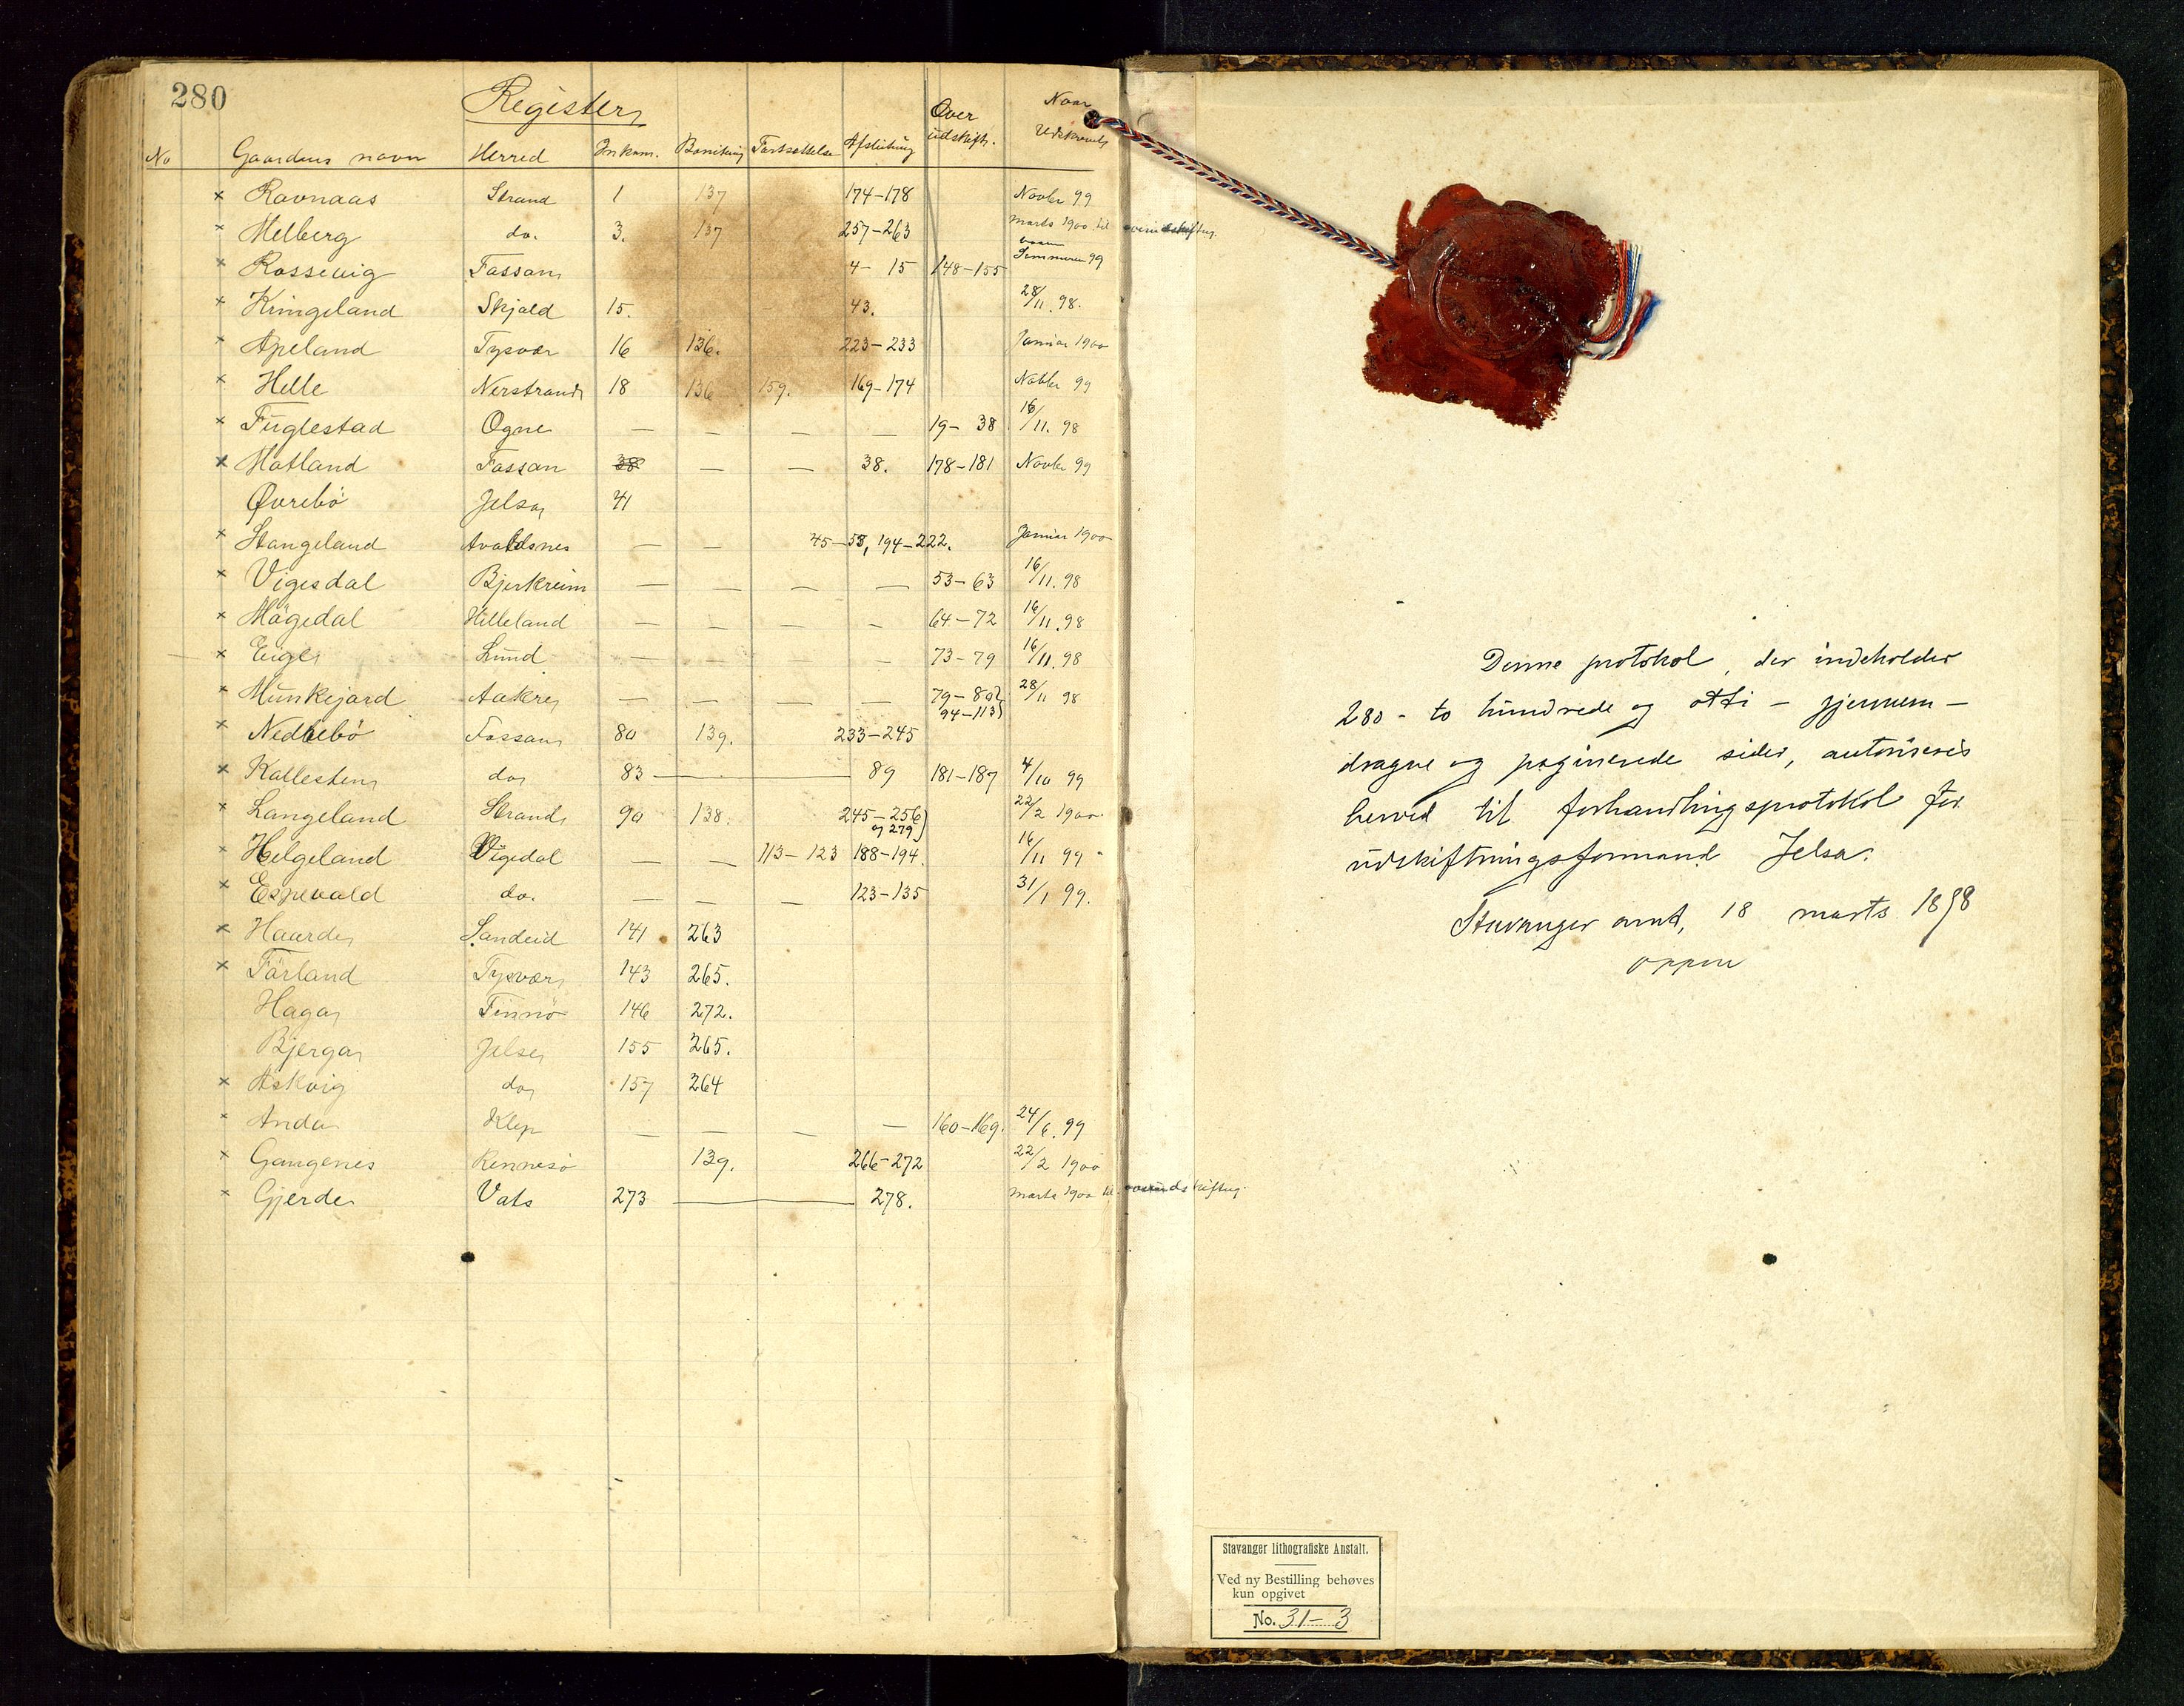 280
Register
No Gaardens navn Herred Inkam. Bonitering Fortsættelse Afslutning Over udskiftn. Naar Udskrevet
× Ravnaas Strand 1 137 174-178 Novbr 99
× Melberg do. 3. 137 257-263 marts 1900 til overudskiftng.
× Rossevig Fossan 4- 15 148-155 Sommeren 99
× Kringeland Skjold 15. 43. 28/11. 98.
× Apeland Tysvær 16 136. 223-233 Januar 1900
× Helle Nerstrand 18 136 159. 169-174 Novbr 99
× Fuglestad Ogne — — — — 19- 38 16/11. 98
× Hatland Fossan 38 — — 38. 178-181 Novbr 99
Øvrebö Jelsa 41
× Stangeland Avaldsnes — — 45-53, 194-222. Januar 1900
× Vigesdal Bjerkreim — — — — 53-63 16/11. 98
× Mögedal Hilleland — — — - 64-72 16/11. 98
× Eige Lund — — — - 73-79 16/11. 98
× Munkejord Aakre — — — — 79-80 28/11 98
94-113)
× Nedrebö Fossan 80 139. 233-245
× Kallesten do 83 — 89 181-187 4/10 99
× Langeland Strand 90 138. 245-256) 22/2 1900
og 279)
× Helgeland Vigedal — — 113-123 188-194. 16/11 99
× Espevold do. — — — 123-135 31/1 99.
× Haarde Sandeid 141 263
× Førland Tysvær 143 265.
Haga Finnö 146 272.
Bjerga Jelse 155 265.
× Askvig do 157 264
× Anda Klep — — — — 160-169. 24/6. 99
× Gangenes Rennesö 139. 266-272 22/2 1900
× Gjerde Vats 273 — 278. marts 1900 til overudskiftng.
Denne protokol, der indeholder
280 - to hundrede og otti - gjennem-
dragne og paginerede sider, autoriseres
herved til forhandlingsprotokol for
udskiftningsformand Jelsa.
Stavanger amt, 18 marts 1898
Oppen
Stavanger lithografiske Anstalt.
Ved ny Bestilling behøves
kun opgivet
No. 31-3